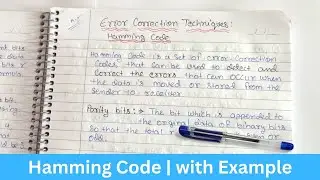 Error Correction Techniques:
Hamming Code
Hamming Code is a set of error-correction
Codes that can be used to detect and
Correct the errors that can occur when
the data is moved or stored from the
sender to receiver
Parity bits :- The bit which is appended to
the original data of binary bits
so that the total
odd.
Hamming Code | with Example